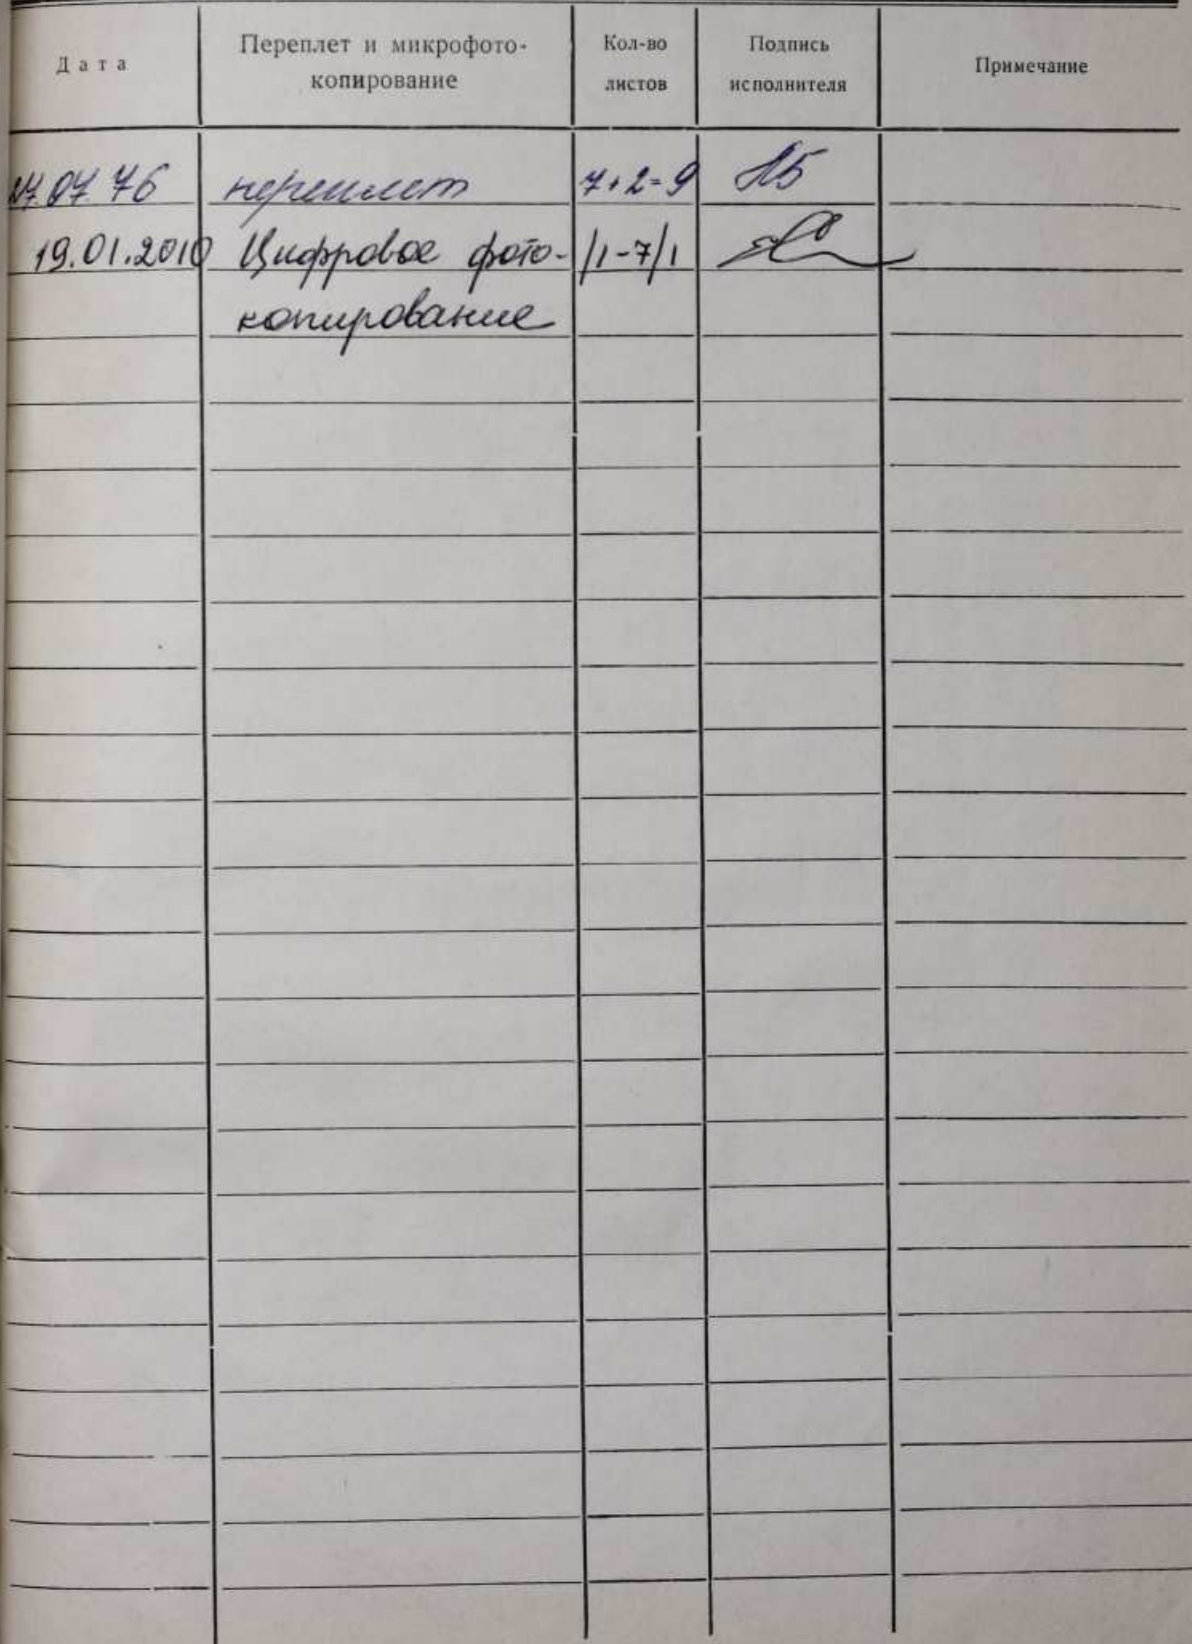 Дата
Переплет и микрофото-
копирование
Кол-во
листов
Подпись
исполнителя
Примечание
07.76 переплет 7+2=9
19.01.2010 Цифровое фото- /1-7/1
копирование